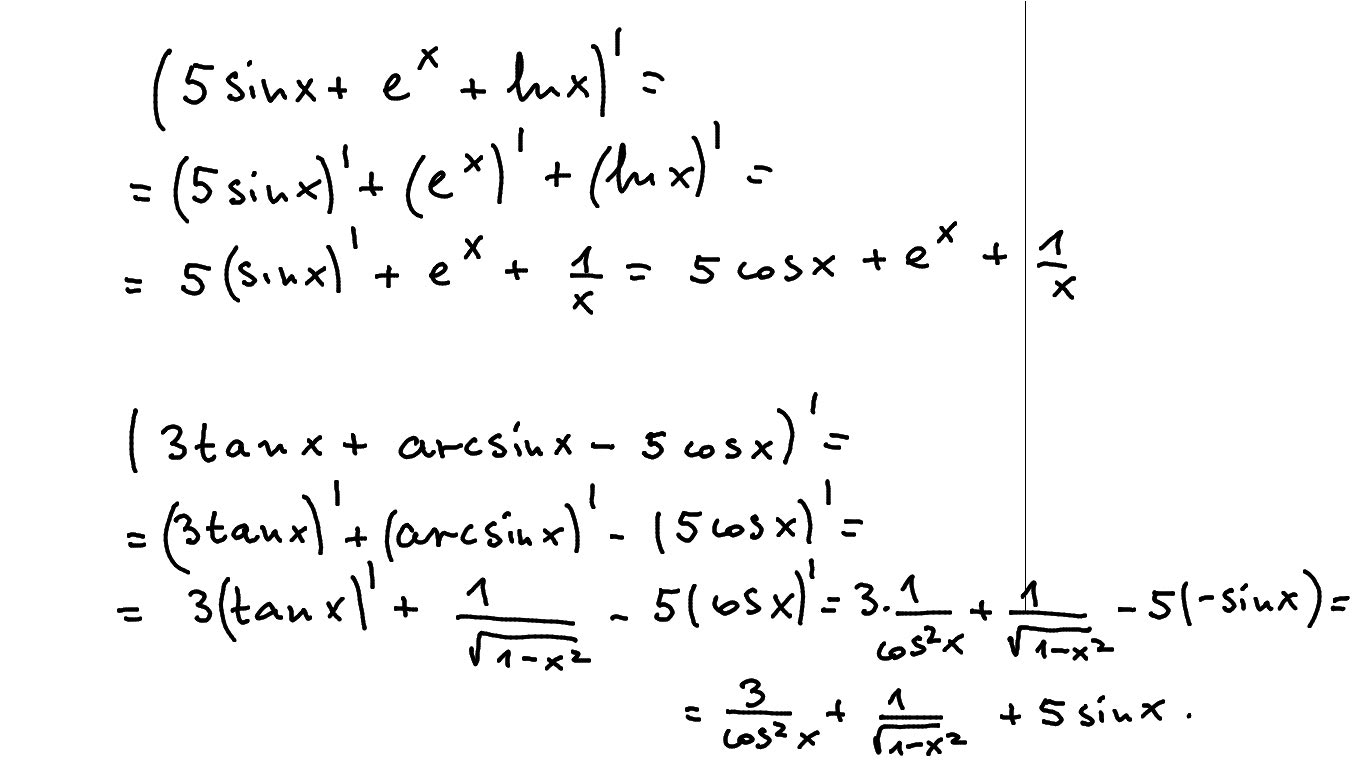 (5 sinx + e^x + ln x)' =
= (5 sinx)' + (e^x)' + (ln x)' =
= 5 (sinx)' + e^x + 1/x = 5 cosx + e^x + 1/x
(3 tan x + arcsin x - 5 cos x)' =
= (3 tan x)' + (arcsin x)' - (5 cos x)' =
= 3(tan x)' + 1/√(1-x²) - 5(cos x)' = 3·1/cos²x + 1/√(1-x²) - 5(-sinx) =
= 3/cos²x + 1/√(1-x²) + 5 sinx.